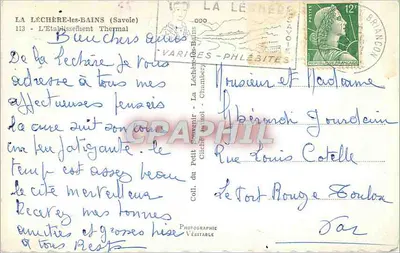 LA LÉCHÈRE-les-BAINS (Savoie)
113 - L'Etablissement Thermal
Bien chers amis
De la Léchère je vous
adresse à tous mes
affectueuses pensées
la cure suit son cours
un peu fatigante. le
temps est assez beau
le cité merveilleux
Recevez mes bonnes
amitiés et grosses bise
à tous
Coll. du Petit Souvenir - La Léchère-les-Bains
Chambéry
PHOTOGRAPHIE
VÉRITABLE
LA LÉCHÈRE
VARICES-PHLÉBITES
12F
BRIANCON
Monsieur et Madame
Jourdain
Rue Louis Cotelle
Le Fort Rouge Toulon
Var
PICSHARP